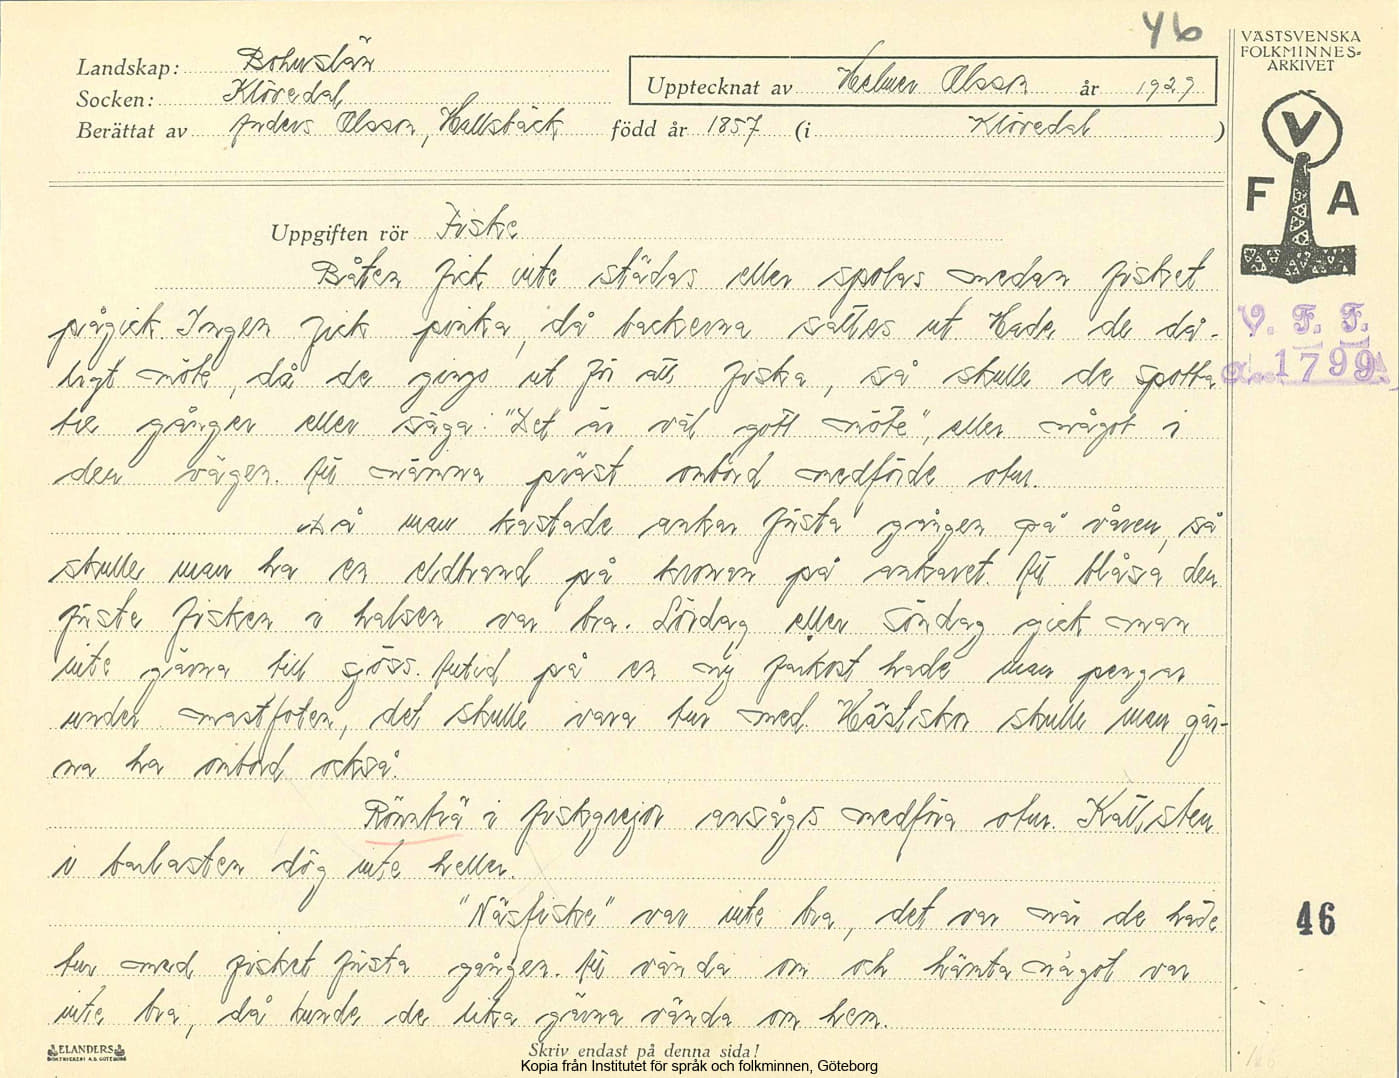 46
VÄSTSVENSKA
FOLKMINNES-
ARKIVET
Landskap: Bohuslän
Socken: Klövedal
Upptecknat av Helmer Olsson år 1929
Berättat av Anders Olsson, Hallsbäck född år 1857 (i Klövedal)
V
F A
Uppgiften rör Fiske
Båten fick inte städas eller spolas medan fisket
pågick. Ingen fick pinka, då backorna sattes ut. Hade de då-
ligt möte, då de gingo ut för att fiska, så skulle de spotta
tre gånger eller säga: "Det är väl gott möte", eller något i
den vägen. Att nämna präst ombord medförde otur.
V. F. F.
1799
Då man kastade ankar första gången på våren, så
skulle man ha en eldbrand på kronan på ankaret. Att blåsa den
förste fisken i halsen var bra. Lördag eller söndag gick man
inte gärna till sjöss. Alltid på en ny farkost hade man pengar
under mastfoten, det skulle vara tur med. Hästskor skulle man gär-
na ha ombord också.
Rönnträ i fiskgrejor ansågs medföra otur. Kattsten
i barlasten dög inte heller.
"Näsfiske" var inte bra, det var när de hade
tur med fisket första gången. Att vända om och hämta något var
inte bra, då kunde de lika gärna vända om hem.
46
ELANDERS
BOKTRYCKERI A.B. GÖTEBORG
Skriv endast på denna sida!
Kopia från Institutet för språk och folkminnen, Göteborg